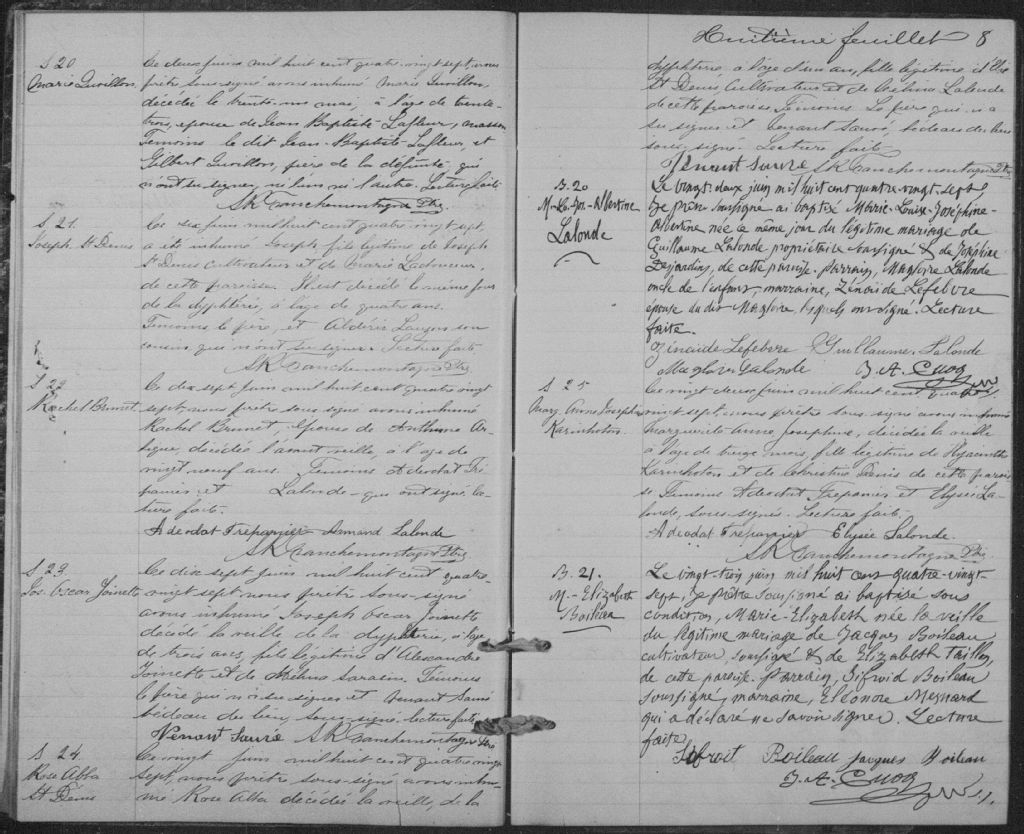 S 20
Marie Quvillon
Ce deux juin mil huit cent quatre-vingt sept, nous
prêtre sous-signé avons inhumé Marie Quvillon,
décédée le trente-un mai, à l'âge de trente-
trois, épouse de Jean Baptiste Lafleur,
Temoins le dit Jean-Baptiste Lafleur, et
Gilbert Quvillon, père de la défunte qui
n'ont su signer, ni l'un ni l'autre. Lecture faite
SR Tranchemontagne Ptre
S 21.
Joseph St Denis
Ce six juin mil huit cent quatre-vingt sept,
a été inhumé Joseph fils légitime de Joseph
St Denis cultivateur et de Marie Ladouceur,
de cette paroisse. Il est décédé le même jour
de la dypthérie, à l'âge de quatre ans.
Temoins le père, et Aldéric Lauzon son
cousin, qui n'ont su signer. Lecture faite
SR Tranchemontagne Ptre
S 22
Rachel Brunet
Ce dix sept juin mil huit cent quatre vingt
sept, nous prêtre sous-signé avons inhumé
Rachel Brunet, épouse de Anthime
décédée l'avant veille, à l'âge de
vingt neuf ans. Temoins Adeodat Tré-
panier et Lalonde qui ont signé lec-
ture faite.
Adeodat Trépanier Armand Lalonde
SR Tranchemontagne Ptre
S. 23
Jos. Oscar Joinette
Ce dix sept juin mil huit cent quatre-
vingt sept nous prêtre sous-signé
avons inhumé Joseph Oscar Joinette
décédé la veille de la dypthérie, à l'âge
de trois ans, fils légitime d'Alexandre
Joinette et de Sarasin. Temoins
le père qui n'a su signer et Venant Sauvé
bédeau du lieu, sous-signé. Lecture faite
Venant Sauvé SR Tranchemontagne Ptre
S. 24
Rose Alba
St Denis
Ce vingt juin mil huit cent quatre vingt
sept, nous prêtre sous-signé avons inhu-
mé Rose Alba décédée la veille, de la
Huitième feuillet 8
dyphterie, à l'âge d'un an, fille légitime
St Denis Cultivateur et de Lalonde
de cette paroisse Temoins Le père qui n'a
su signer et Venant Sauvé, bédeau du lieu
sous-signé. Lecture faite
Venant Sauvé SR Tranchemontagne Ptre
B. 20
M-L-Jos-Albertine
Lalonde
Le vingt-deux juin mil huit cent quatre-vingt-sept
Je prêtre soussigné ai baptisé Marie-Louise-Joséphine-
Albertine née le même jour du légitime mariage de
Guillaume Lalonde, propriétaire soussigné & de Joséphine
Desjardins, de cette paroisse. Parrain, Magloire Lalonde
oncle de l'enfant, marraine, Zénaide Lefebvre
épouse du dit Magloire, lesquels ont signé. Lecture
faite.
Zinaide Lefebvre Guillaume Lalonde
Magloire Lalonde J. A. Cuoq
Ptre
S 25
Marg. Anne Joseph
Karinhoton
Ce vingt deux juin mil huit cent quatre
vingt sept, nous prêtre sous-signé avons inhumé
Marguerite Anne Josephine, décédée la veille
à l'âge de treize mois, fille légitime de Hyacinthe
Karinhoton et de Christine Denis de cette parois-
se Temoins Adeodat Trépanier et Elysée La-
londe, sous-signés. Lecture faite.
Adeodat Trépanier Elysée Lalonde.
SR Tranchemontagne Ptre
B. 21.
M-Elizabeth
Boileau
Le vingt-trois juin mil huit cent quatre-vingt-
sept, Je prêtre soussigné ai baptisé sous
condition, Marie-Elizabeth née la veille
du légitime mariage de Jacques Boileau
cultivateur, soussigné & de Elizabeth
de cette paroisse. Parrain, Sifroid Boileau
soussigné, marraine, Eléonore Mesnard
qui a déclaré ne savoir signer. Lecture
faite
Sifroit Boileau Jacques Boileau
J. A. Cuoq
Ptre